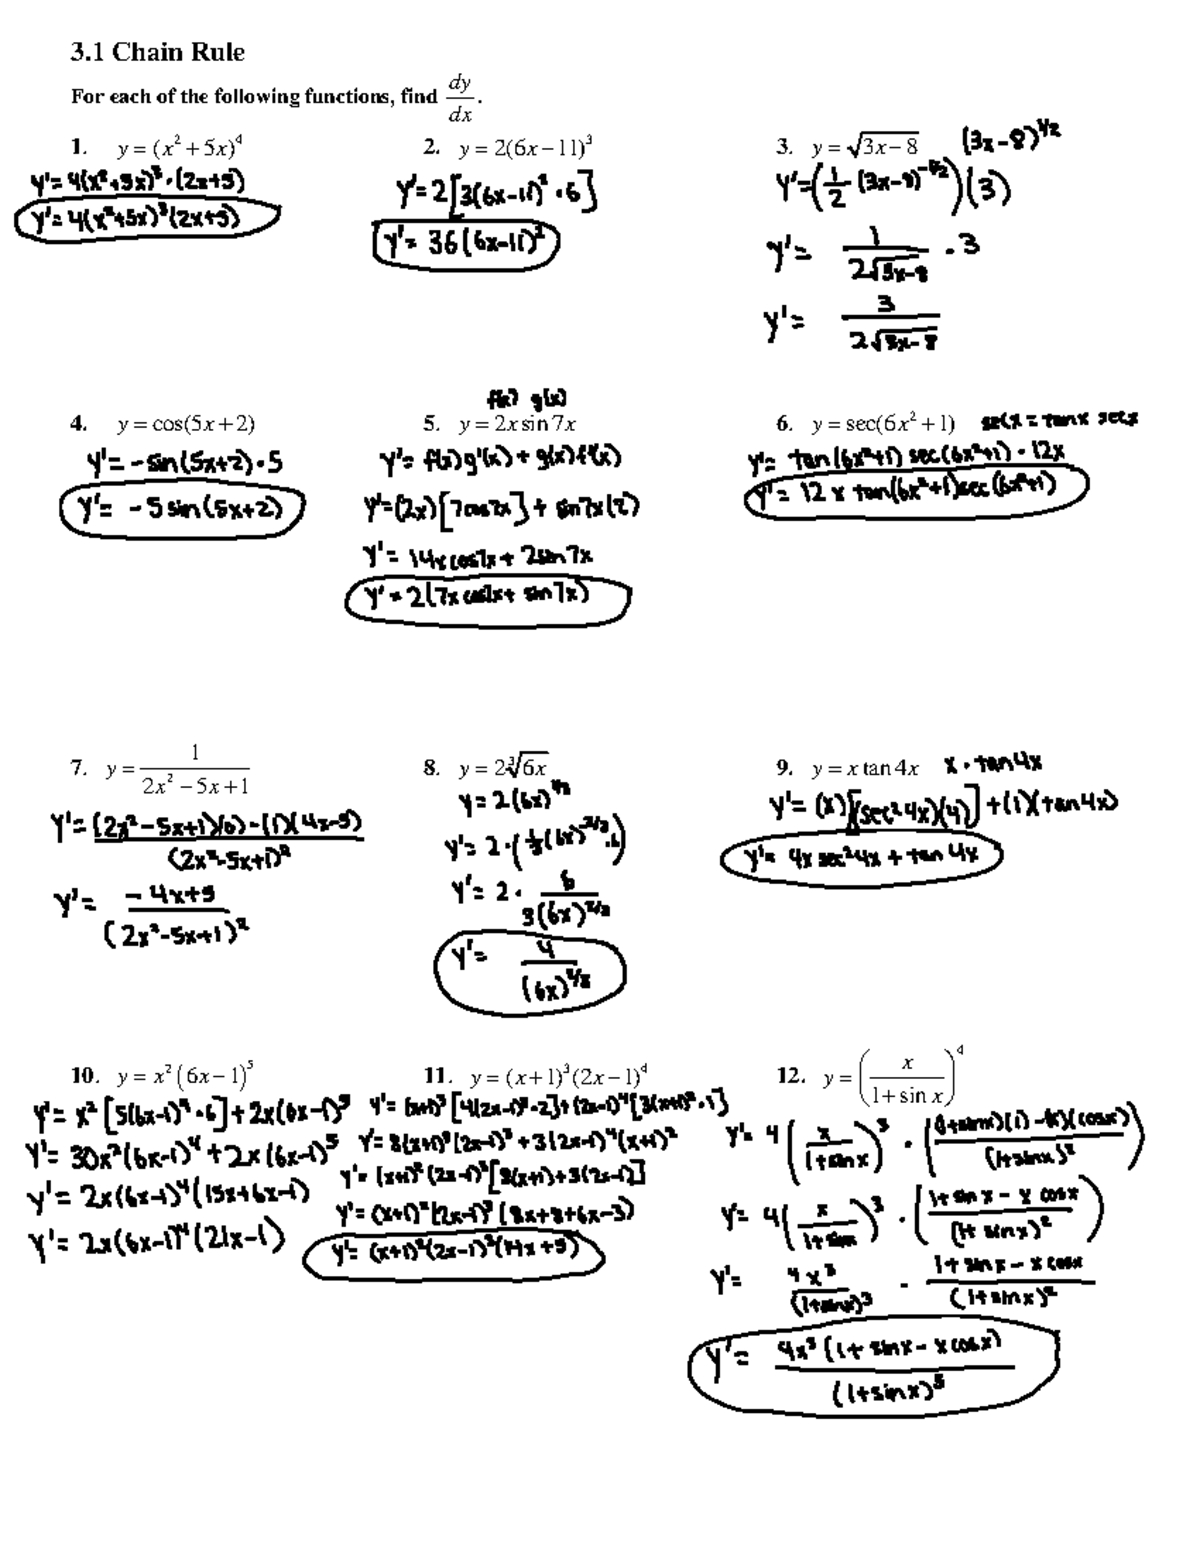 3.1 Chain Rule
For each of the following functions, find dy/dx.
1. y = (x² + 5x)⁴
y' = 4(x²+5x)³ · (2x+5)
y' = 4(x²+5x)³(2x+5)
2. y = 2(6x − 11)³
y' = 2[3(6x−11)² · 6]
y' = 36(6x−11)²
3. y = √(3x − 8) (3x−8)^(1/2)
y' = (1/2 (3x−8)^(−1/2))(3)
y' = 1/(2√(3x−8)) · 3
y' = 3/(2√(3x−8))
4. y = cos(5x + 2)
y' = −sin(5x+2) · 5
y' = −5 sin(5x+2)
f(x) g(x)
5. y = 2x sin 7x
y' = f(x)g'(x) + g(x)f'(x)
y' = (2x)[7cos7x] + sin7x(2)
y' = 14x cos7x + 2sin7x
y' = 2(7x cos7x + sin7x)
6. y = sec(6x² + 1) secx = tanx secx
y' = tan(6x²+1) sec(6x²+1) · 12x
y' = 12x tan(6x²+1)sec(6x²+1)
7. y = 1/(2x² − 5x + 1)
y' = ((2x²−5x+1)(0) − (1)(4x−5))/(2x²−5x+1)²
y' = (−4x+5)/(2x²−5x+1)²
8. y = 2∛(6x)
y = 2(6x)^(1/3)
y' = 2 · (1/3 (6x)^(−2/3) · 6)
y' = 2 · 6/(3(6x)^(2/3))
y' = 4/(6x)^(2/3)
9. y = x tan 4x x · tan4x
y' = (x)[(sec²4x)(4)] + (1)(tan4x)
y' = 4x sec²4x + tan 4x
10. y = x²(6x − 1)⁵
y' = x²[5(6x−1)⁴ · 6] + 2x(6x−1)⁵
y' = 30x²(6x−1)⁴ + 2x(6x−1)⁵
y' = 2x(6x−1)⁴(15x+6x−1)
y' = 2x(6x−1)⁴(21x−1)
11. y = (x + 1)³(2x − 1)⁴
y' = (x+1)³[4(2x−1)³ · 2] + (2x−1)⁴[3(x+1)² · 1]
y' = 8(x+1)³(2x−1)³ + 3(2x−1)⁴(x+1)²
y' = (x+1)²(2x−1)³[8(x+1)+3(2x−1)]
y' = (x+1)²(2x−1)³(8x+8+6x−3)
y' = (x+1)²(2x−1)³(14x+5)
12. y = (x/(1 + sin x))⁴
y' = 4(x/(1+sinx))³ · (((1+sinx)(1) − (x)(cosx))/(1+sinx)²)
y' = 4(x/(1+sinx))³ · ((1+sin x − x cosx)/(1+sinx)²)
y' = 4x³/(1+sinx)³ · (1+sinx − x cosx)/(1+sinx)²
y' = 4x³(1+sinx − x cosx)/(1+sinx)⁵